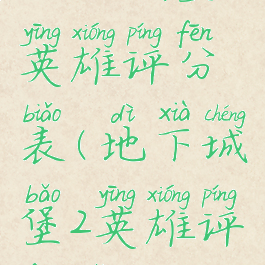 yīng xióng píng fēn
英雄评分
biǎo dì xià chéng
表(地下城
bǎo yīng xióng píng
堡2英雄评